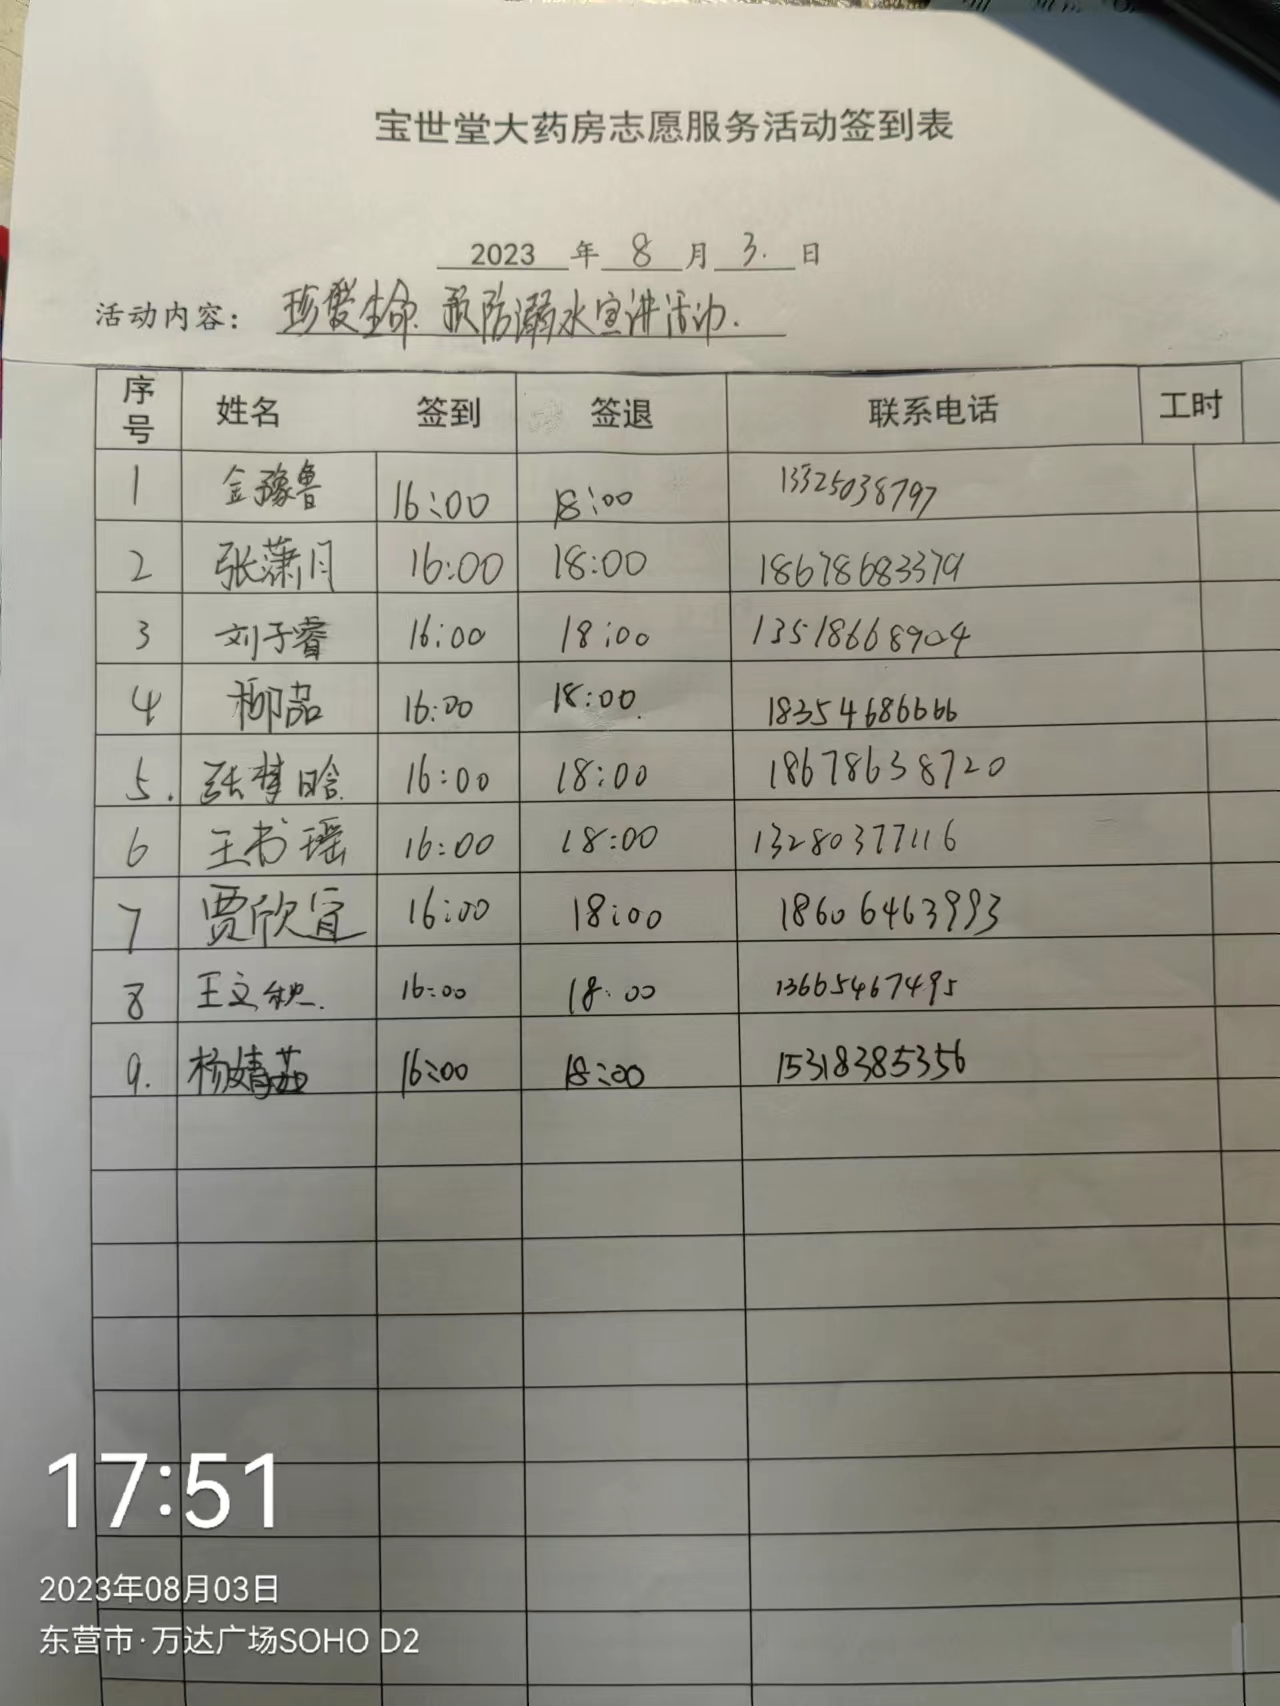 宝世堂大药房志愿服务活动签到表
2023 年 8 月 3. 日
活动内容： 珍爱生命. 预防溺水宣讲活动.
序号 姓名 签到 签退 联系电话 工时
1 金豫鲁 16:00 18:00 13325038797
2 张潇月 16:00 18:00 18678683379
3 刘子睿 16:00 18:00 13518668904
4 柳喆 16:00 18:00. 18354686666
5. 张梦晗 16:00 18:00 18678638720
6 王书瑶 16:00 18:00 13280377116
7 贾欣宜 16:00 18:00 18606463993
8 王文秋. 16:00 18:00 13665467495
9. 杨婧茹 16:00 18:00 15318385356
17:51
2023年08月03日
东营市·万达广场SOHO D2